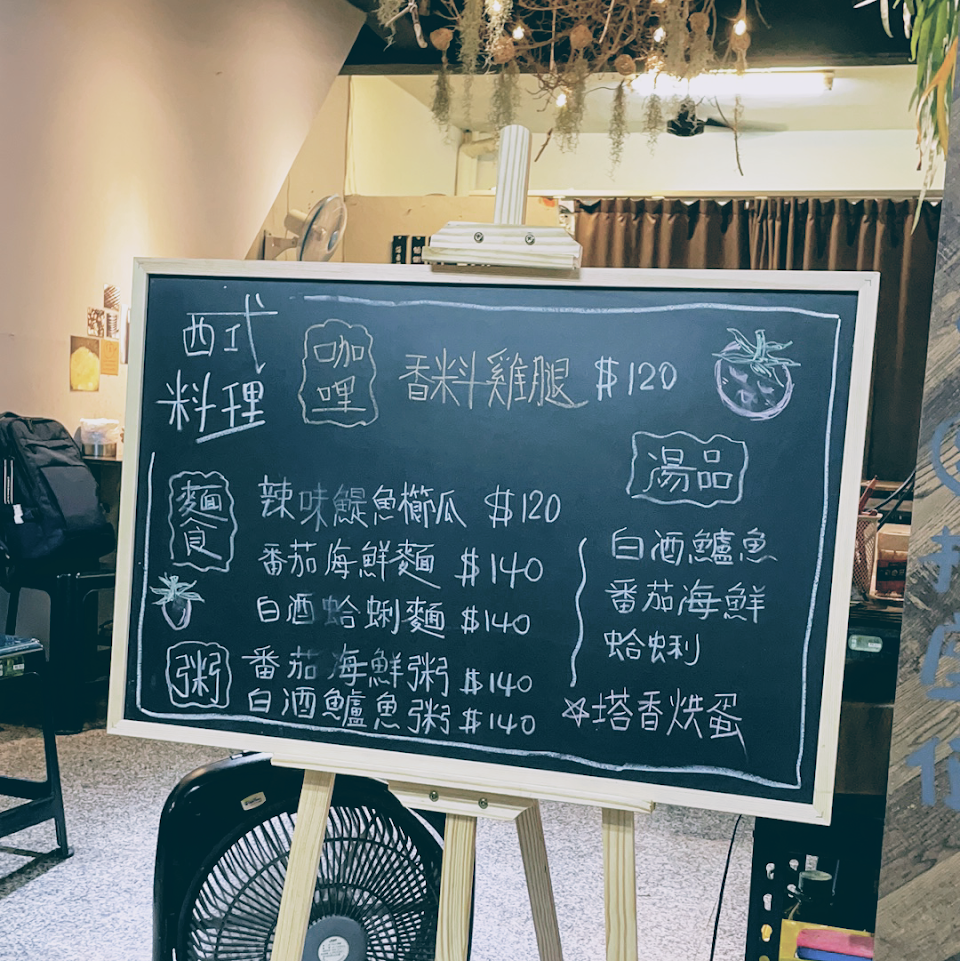 西式
料理
咖
哩
香料雞腿 $120
麵
食
辣味鯷魚櫛瓜 $120
番茄海鮮麵 $140
白酒蛤蜊麵 $140
粥
番茄海鮮粥 $140
白酒鱸魚粥 $140
湯品
白酒鱸魚
番茄海鮮
蛤蜊
☆塔香烘蛋